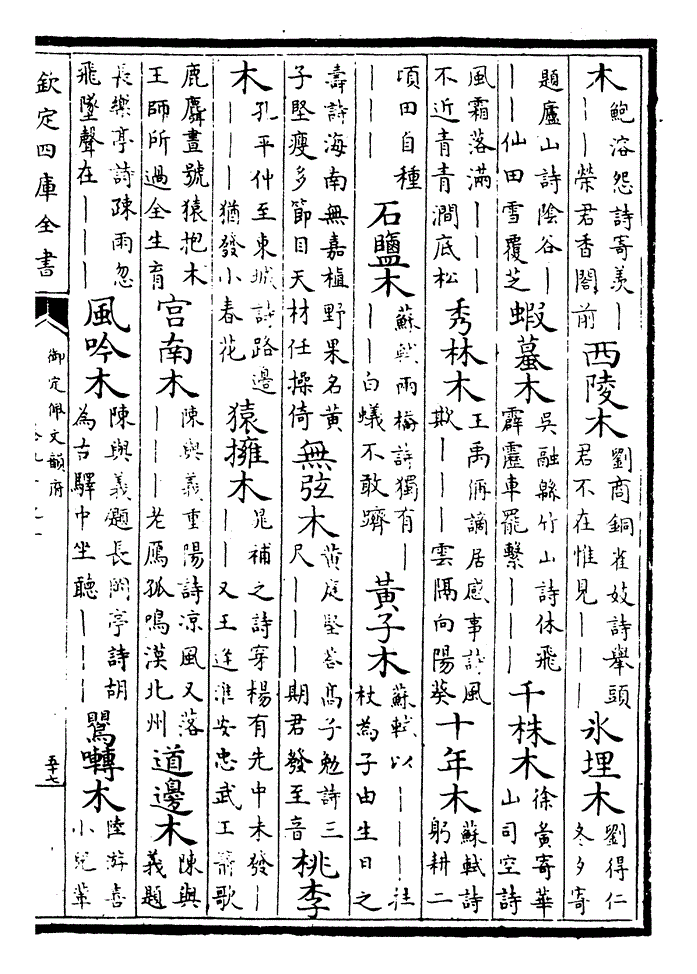 木
鮑溶怨詩寄羡｜
｜｜榮君香閣前
西陵木
劉商銅雀妓詩舉頭
君不在惟見｜｜｜
氷埋木
劉得仁
冬夕寄
題廬山詩陰谷｜
｜｜仙田雪覆芝
蝦蟇木
吳融緜竹山詩休飛
霹靂車罷繫｜｜｜
千株木
徐夤寄華
山司空詩
風霜落滿｜｜｜
不近青青澗底松
秀林木
王禹偁謫居感事詩風
欺｜｜｜雲隔向陽葵
十年木
蘇軾詩
躬耕二
頃田自種
｜｜｜
石鹽木
蘇軾兩橋詩獨有｜
｜｜白蟻不敢躋
黃子木
蘇軾以｜｜｜拄
杖為子由生日之
壽詩海南無嘉植野果名黃
子堅瘦多節目天材任操倚
無弦木
黃庭堅荅高子勉詩三
尺｜｜｜期君發至音
桃李
木
孔平仲至東城詩路邊
｜｜｜猶發小春花
猿擁木
晁補之詩穿楊有先中未發｜
｜｜又王逢淮安忠武王箭歌
鹿麛晝號猿抱木
王師所過全生育
宮南木
陳與義重陽詩凉風又落
｜｜｜老鴈孤鳴漢北州
道邊木
陳與
義題
長樂亭詩疎雨忽
飛墜聲在｜｜｜
風吟木
陳與義題長岡亭詩胡
為古驛中坐聽｜｜｜
鶯囀木
陸游喜
小兒輩
欽定四庫全書
御定佩文韻府
五十七